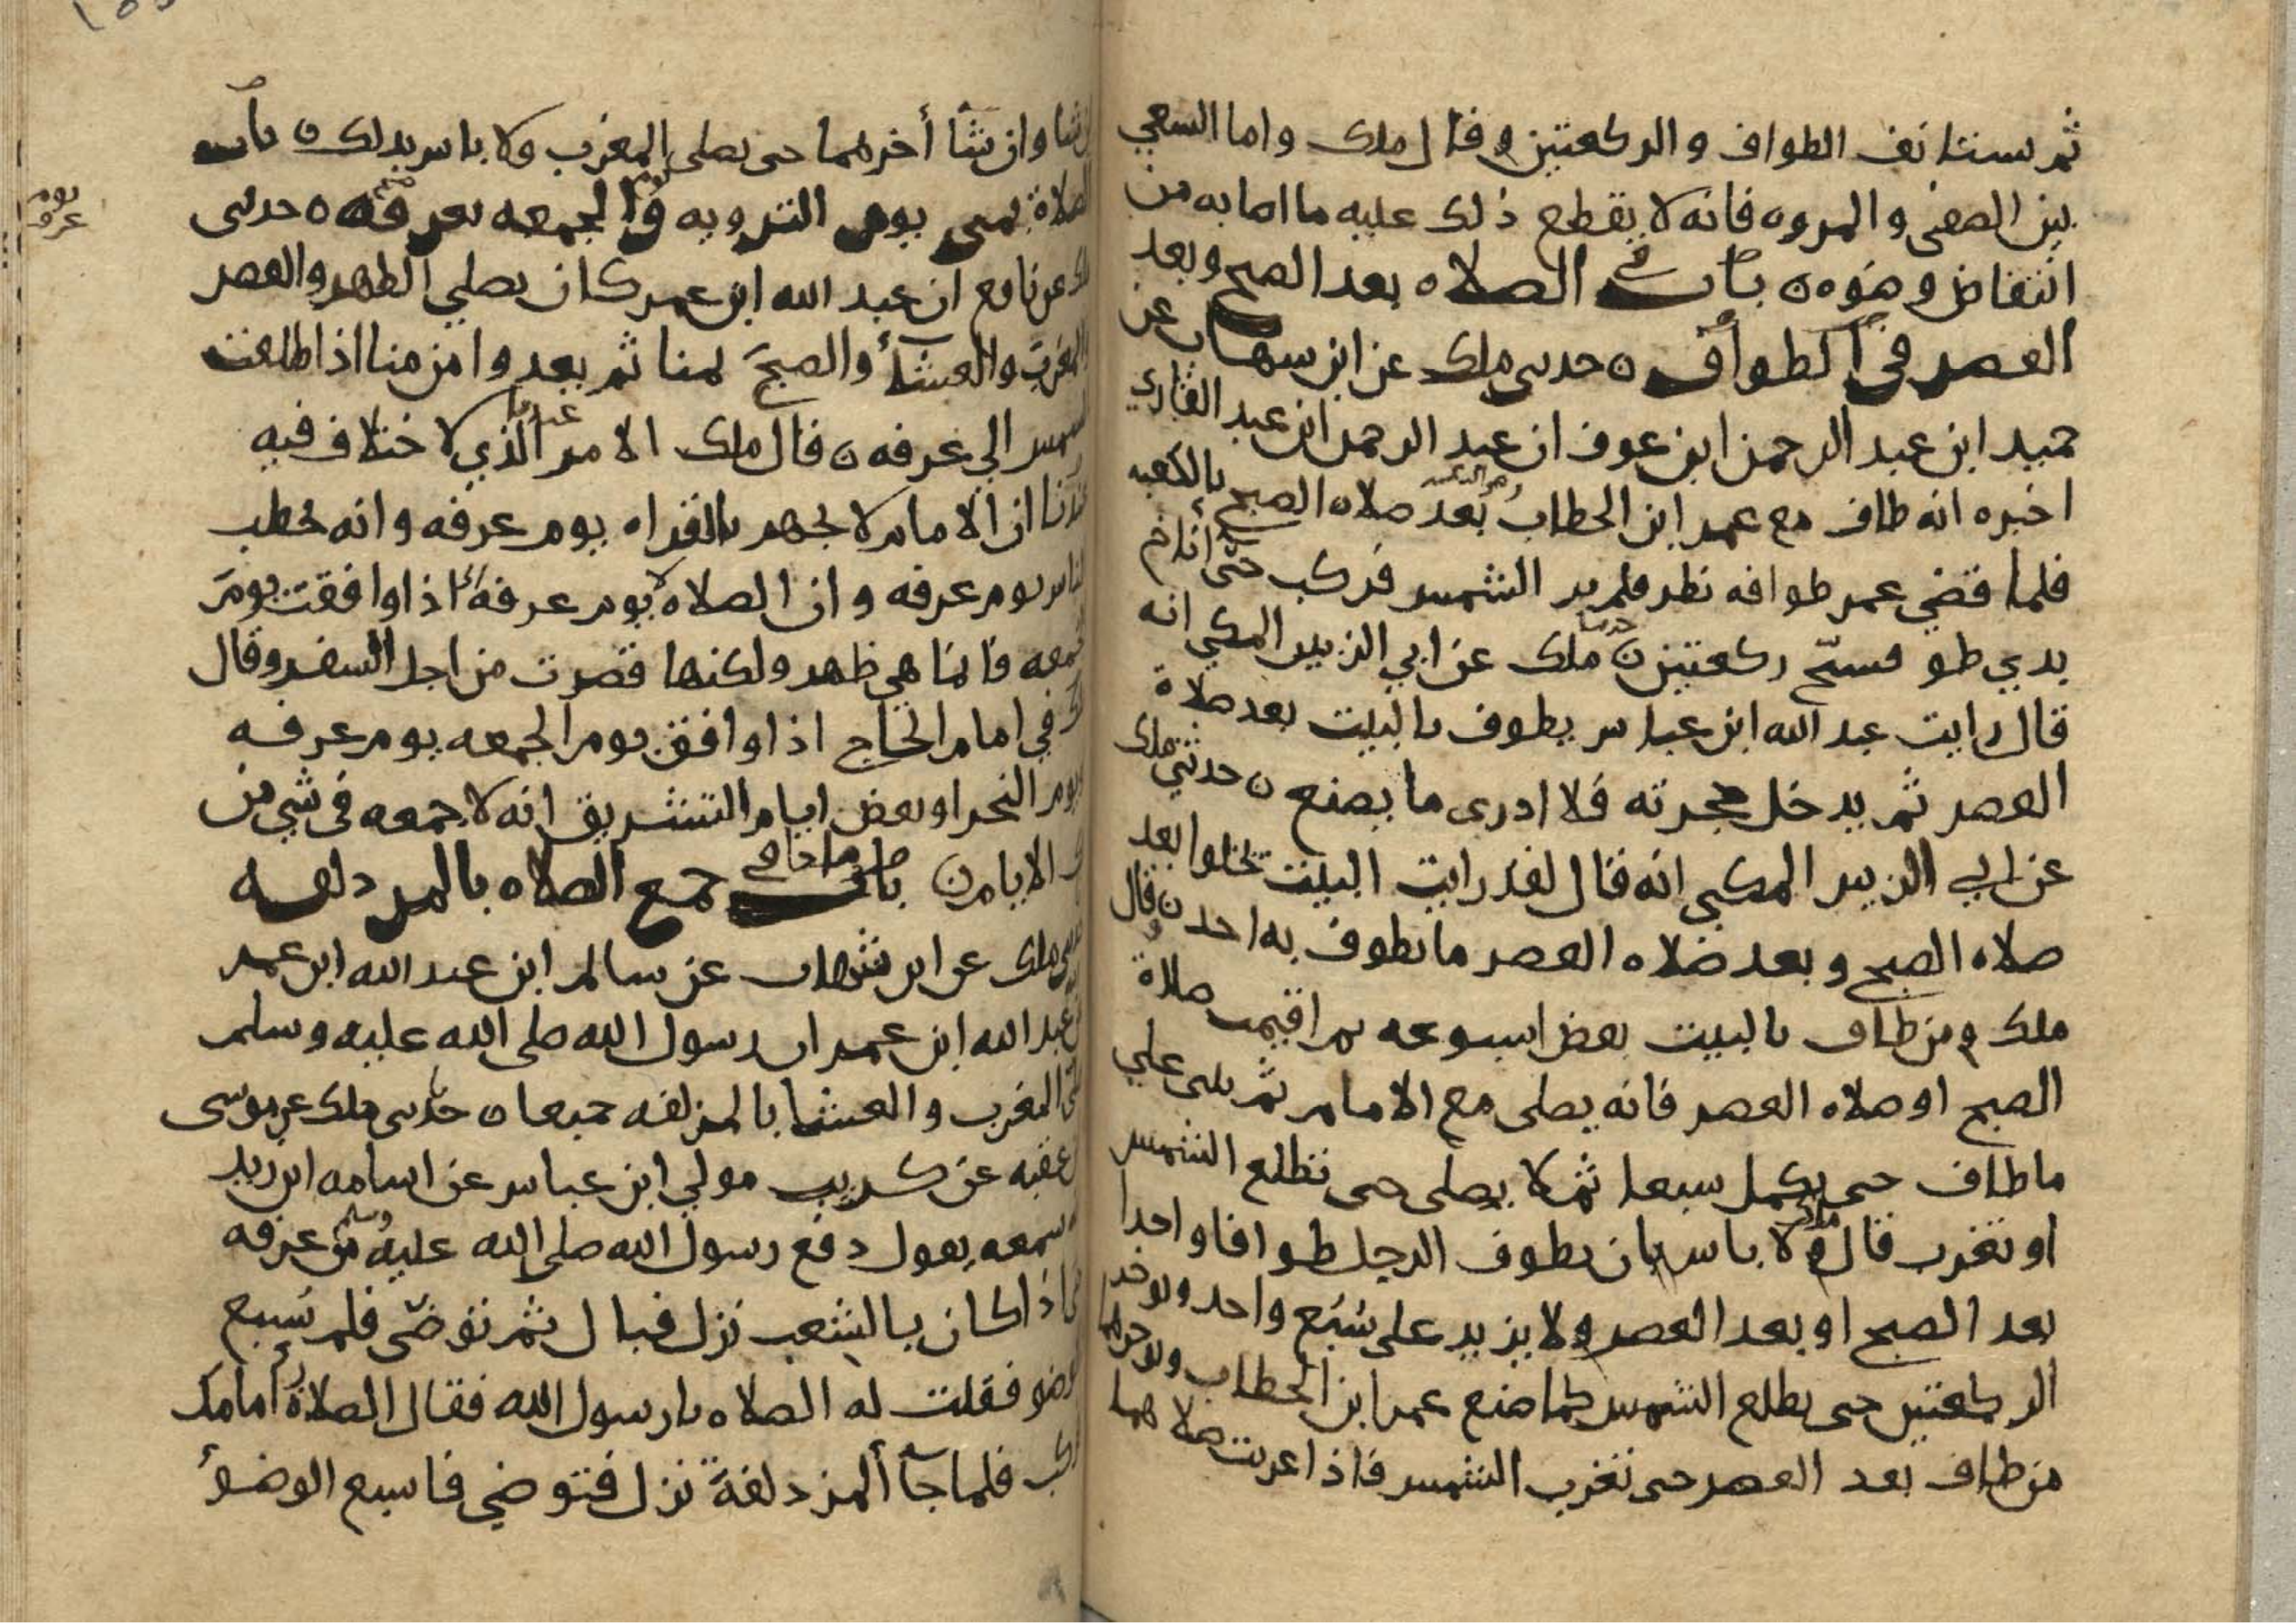 ثم يستانف الطواف والركعتين وقال ملك واما السعي
بين الصفى والمروه فانه لا يقطع ذلك عليه ما اصابه من
انتقاض وضوه ن باب في الصلاه بعد الصبح وبعد
العصر في الطواف ن حدثنى ملك عن ابن شهاب عن
حميد ابن عبد الرحمن ابن عوف ان عبد الرحمن ابن عبد القاري
اخبره انه طاف مع عمر ابن الخطاب بعد صلاه الصبح بالكعبه
فلما قضي عمر طوافه نظر فلم ير الشمس فركب حتى أناخ
بدي طو فسبّح ركعتين ن حدثنا ملك عن ابي الزبير المكي انه
قال رايت عبد الله ابن عباس يطوف بالبيت بعد صلاة
العصر ثم يدخل حجرته فلا ادرى ما يصنع ن حدثني ملك
عن ابي الزبير المكي انه قال لقد رايت البيت تخلوا بعد
صلاه الصبح وبعد صلاه العصر ما يطوف به احد ن وقال
ملك ومن طاف بالبيت بعض اسبوعه ثم اقيمت صلاة
الصبح او صلاه العصر فانه يصلى مع الامام ثم يبنى علي
ما طاف حتى يكمل سبعا ثم لا يصلى حتى تطلع الشمس
او تغرب قال ملك ولا باس بان يطوف الرجل طوافا واحدا
بعد الصبح او بعد العصر ولا يزيد على سُبُع واحد ويوخر
الركعتين حتى تطلع الشمس كما صنع عمر ابن الخطاب ويوخرهما
من طاف بعد العصر حتى تغرب الشمس فاذا غربت صلاهما
ان شا وان شآ أخرهما حتى يصلى المغرب ولا باس بذلك ن باب
الصلاة بمنى يوم الترويه والجمعه بعرفه ن حدثنى
يوم
عرفه
ملك عن نافع ان عبد الله ابن عمر كان يصلي الظهر والعصر
والمغرب والعشآء والصبح بمنا ثم يغدوا من منا اذا طلعت
الشمس الي عرفه ن قال ملك الامر الذي لا اختلاف فيه
عندنا ان الامام لا يجهر بالقراه يوم عرفه وانه يخطب
الناس يوم عرفه وان الصلاه يوم عرفه اذا وافقت يوم
الجمعه فانما هي ظهر ولكنها قصرت من اجل السفر وقال
ملك في امام الحاج اذا وافق يوم الجمعه يوم عرفه
ويوم النحر او بعض ايام التشريق انه لا جمعه في شي من
تلك الايام ن باب ما جا في جمع الصلاه بالمزدلفه
حدثنى ملك عن ابن شهاب عن سالم ابن عبد الله ابن عمر
عن عبد الله ابن عمر ان رسول الله صلى الله عليه وسلم
صلى المغرب والعشا بالمزلفه جميعا ن حدثنى ملك عن موسى
ابن عقبه عن كريب مولي ابن عباس عن اسامه ابن زيد
انه سمعه يقول دفع رسول الله صلى الله عليه وسلم من عرفه
حتى اذا كان بالشعب نزل فبال ثم توضّى فلم يسبع
الوضو فقلت له الصلاه يا رسول الله فقال الصلاة أمامك
فركب فلما جآء المزدلفة نزل فتوضي فاسبع الوضوء